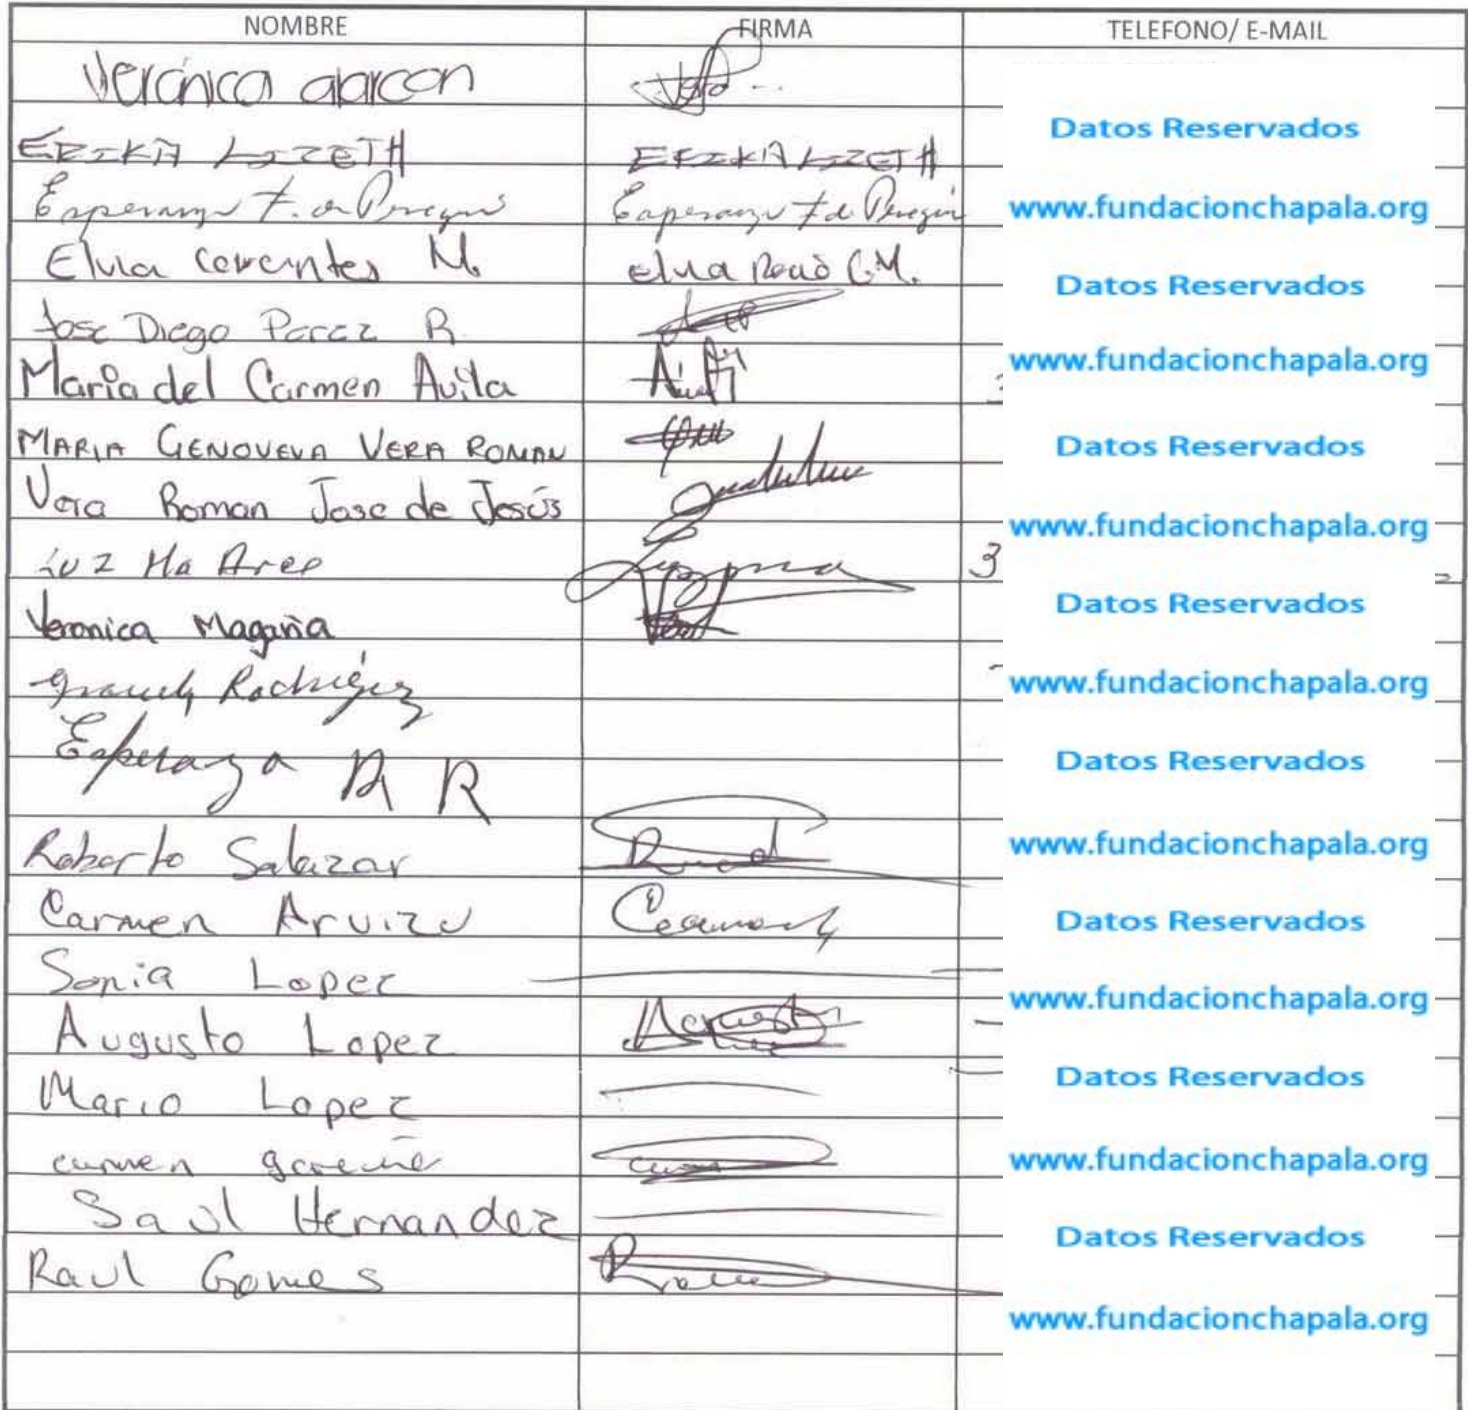 NOMBRE FIRMA TELEFONO/ E-MAIL
Verónica alarcon
Datos Reservados
ERIKA LIZETH ERIKA LIZETH
Esperanza F. de Esperanza F. de
www.fundacionchapala.org
Elvia Cervantes M. elvia Rocio C.M.
Datos Reservados
Jose Diego Perez R.
www.fundacionchapala.org
Maria del Carmen Avila
MARIA GENOVEVA VERA ROMAN
Datos Reservados
Vera Roman Jose de Jesús
www.fundacionchapala.org
Luz Ma Arce Luzma 3
Datos Reservados
Veronica Magaña
Rodriguez
www.fundacionchapala.org
Esperanza A R
Datos Reservados
Roberto Salazar
www.fundacionchapala.org
Carmen Arvizu
Datos Reservados
Sonia Lopez
www.fundacionchapala.org
Augusto Lopez
Mario Lopez
Datos Reservados
carmen
www.fundacionchapala.org
Saul Hernandez
Datos Reservados
Raul Gomes
www.fundacionchapala.org